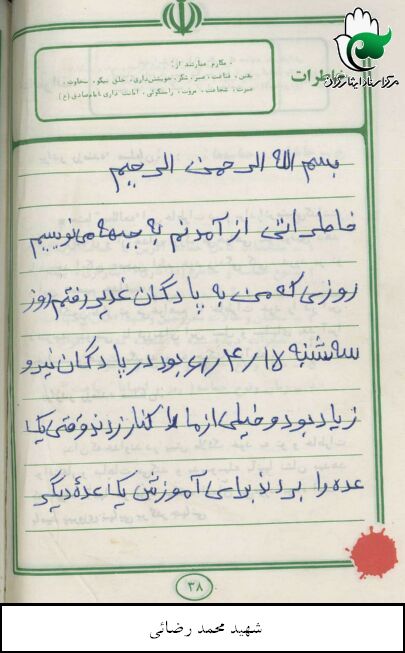 مرکز اسناد ایثارگران
خاطرات
مکارم عبارتند از:
یقین، قناعت، صبر، شکر، خویشتن‌داری، خلق نیکو، سخاوت،
غیرت، شجاعت، مروت، راستگوئی، امانت داری امام صادق (ع)
بسم الله الرحمن الرحیم
خاطراتی از آمدنم به جبهه می‌نویسیم
روزی که من به پادگان غدیر رفتم روز
سه‌شنبه ۶۱/۴/۱۷ بود در پادگان نیرو
زیاد بود و خیلی از ما را کنار زدند وقتی یک
عده را بردند برای آموزش یک عدهٔ دیگر
۳۸
شهید محمد رضائی